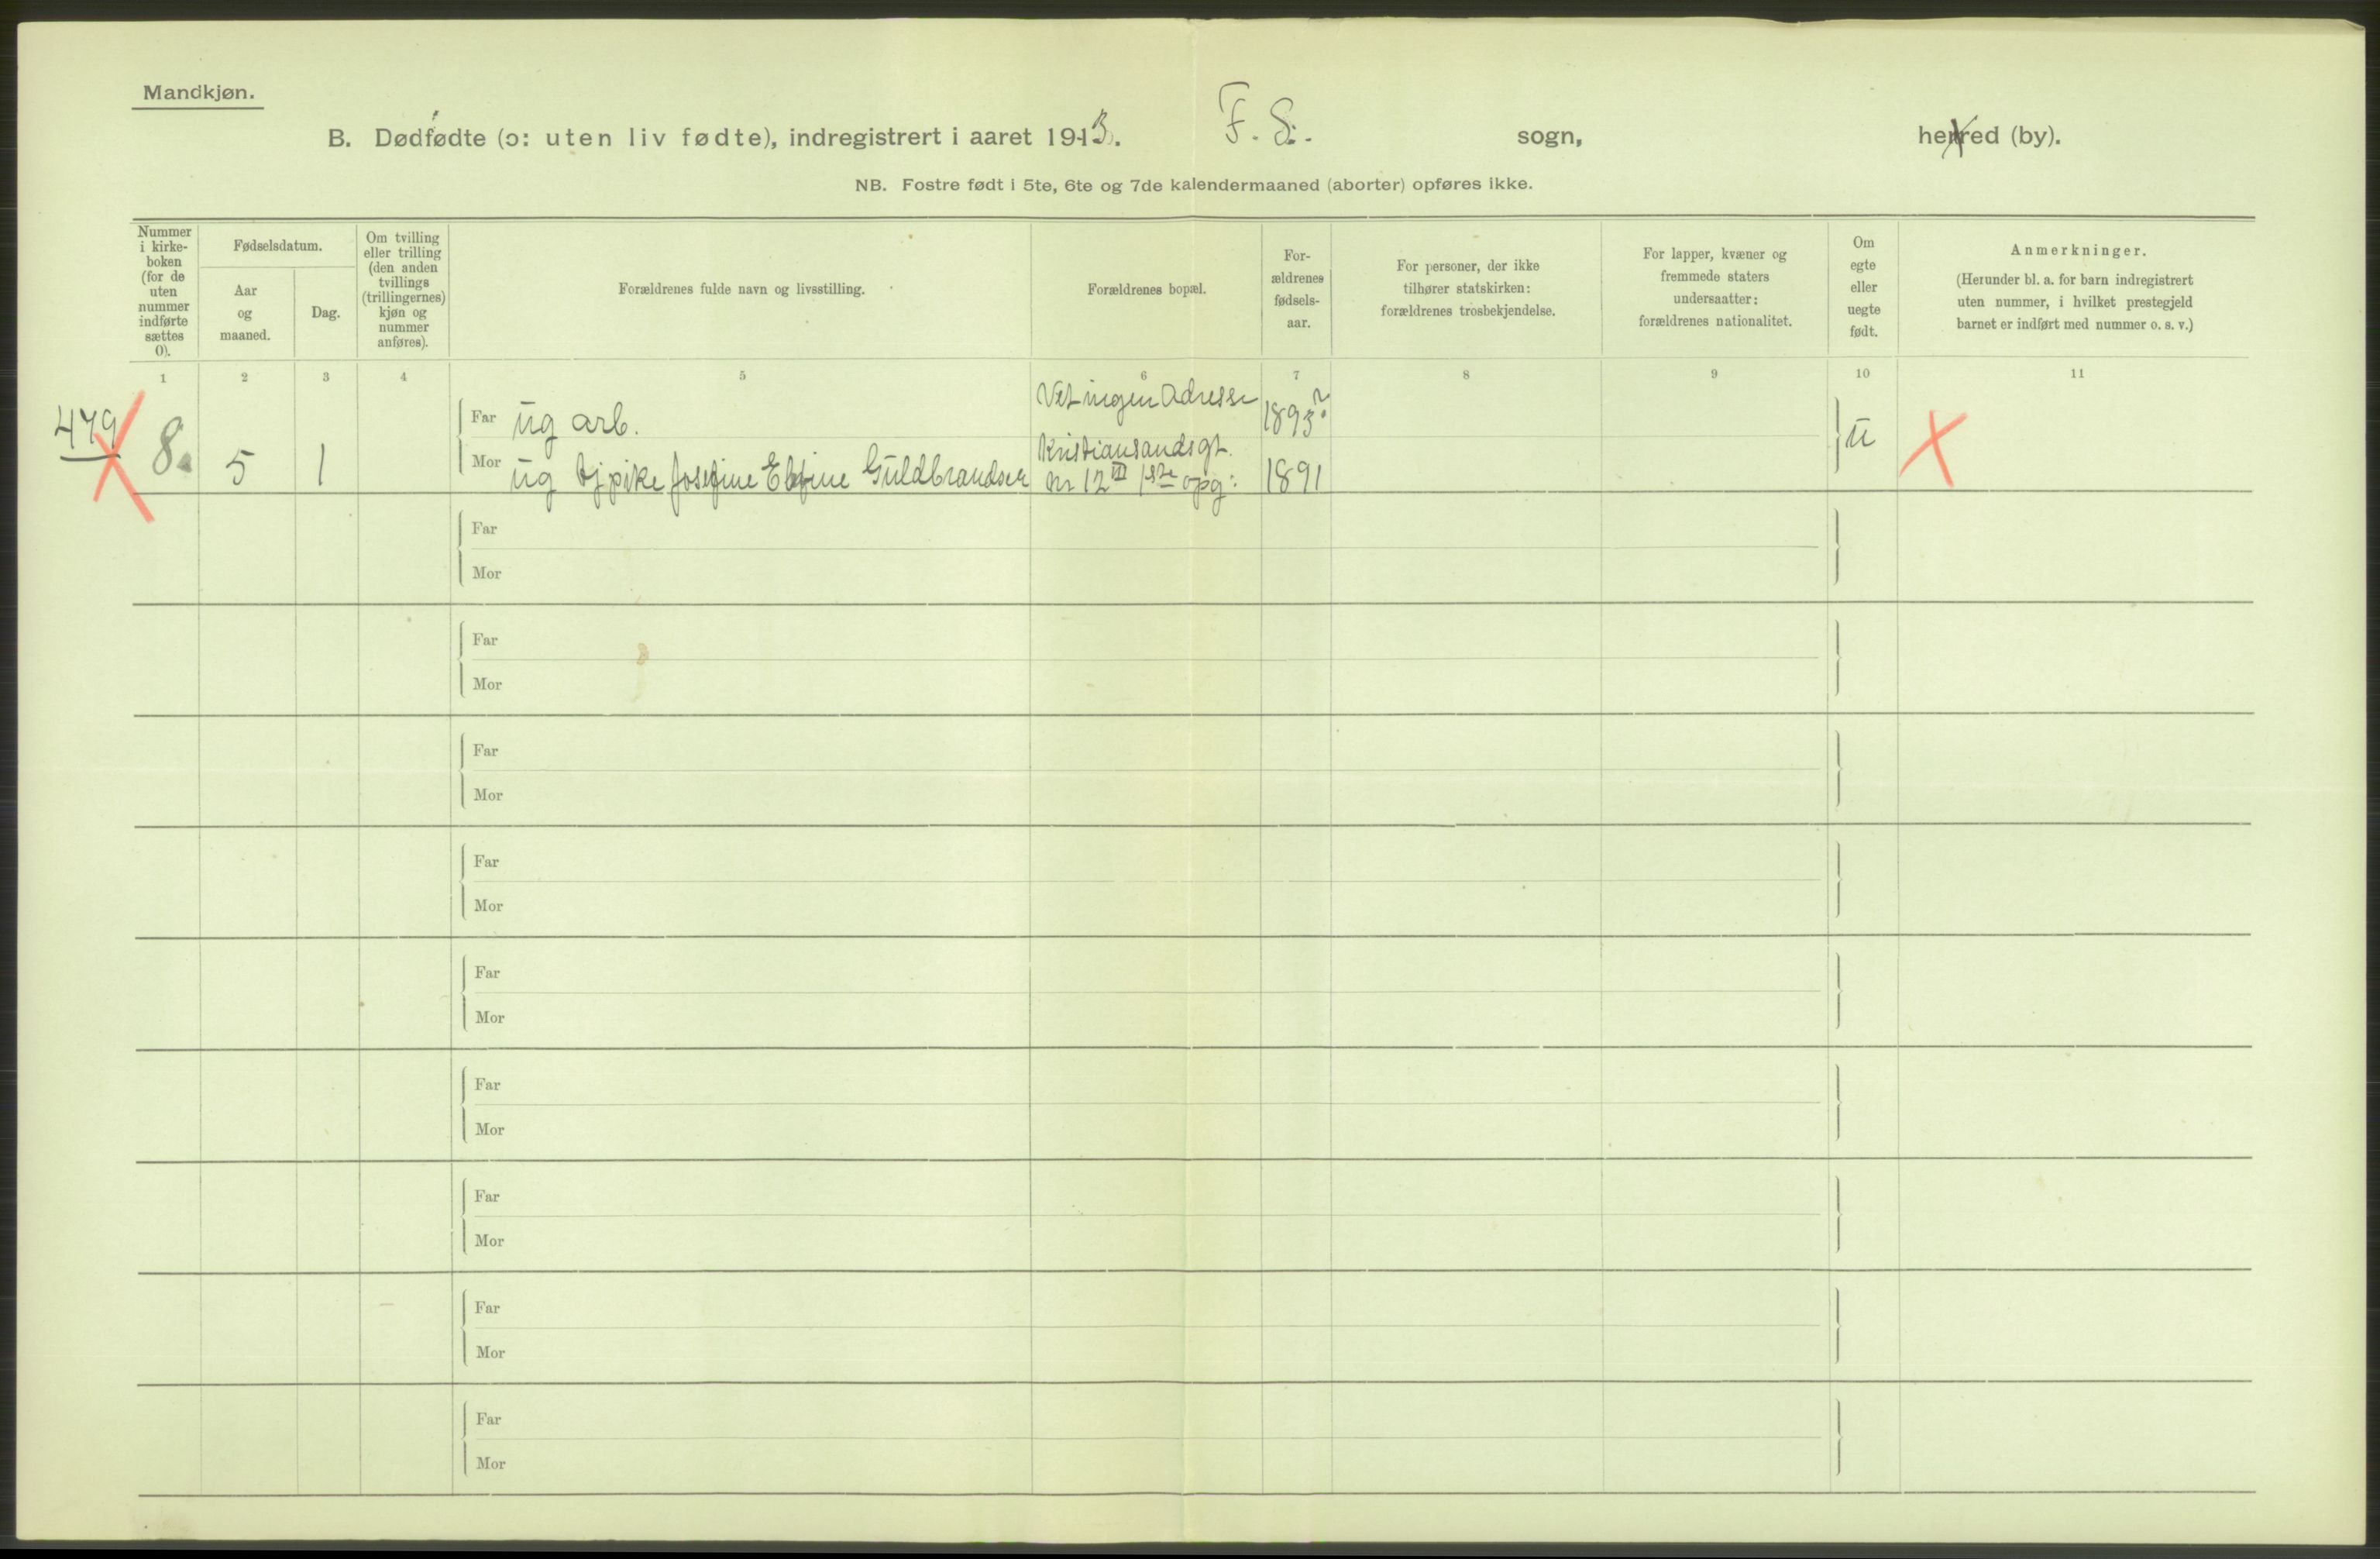 Mandkjøn.
B. Dødfødte (ɔ: uten liv fødte), indregistrert i aaret 1913. F. S. sogn, herred (by).
NB. Fostre født i 5te, 6te og 7de kalendermaaned (aborter) opføres ikke.
Nummer
i kirke-
boken
(for de
uten
nummer
indførte
sættes
0).
Fødselsdatum.
Aar
og
maaned.
Dag.
Om tvilling
eller trilling
(den anden
tvillings
(trillingernes)
kjøn og
nummer
anføres).
Forældrenes fulde navn og livsstilling.
Forældrenes bopæl.
For-
ældrenes
fødsels-
aar.
For personer, der ikke
tilhører statskirken:
forældrenes trosbekjendelse.
For lapper, kvæner og
fremmede staters
undersaatter:
forældrenes nationalitet.
Om
egte
eller
uegte
født.
Anmerkninger.
(Herunder bl. a. for barn indregistrert
uten nummer, i hvilket prestegjeld
barnet er indført med nummer o. s. v.)
1 2 3 4 5 6 7 8 9 10 11
479 8. 5 1
Far ug arb. Vet ingen Adresse 1893?
Mor ug tj pike Josefine Guldbrandsen Kristiansandsgt.
Nr 12 III 1ste opg: 1891
u
Far
Mor
Far
Mor
Far
Mor
Far
Mor
Far
Mor
Far
Mor
Far
Mor
Far
Mor
Far
Mor